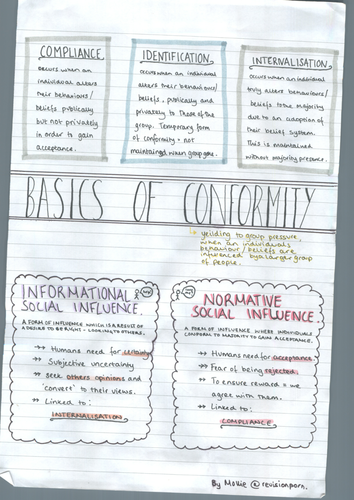 COMPLIANCE
occurs when an
individual alters
their behaviours/
beliefs publically
but not privately
in order to gain
acceptance.
IDENTIFICATION
occurs when an individual
alters their behaviour/
beliefs, publically and
privately to those of the
group. Temporary form
of conformity + not
maintained when group gone.
INTERNALISATION
occurs when an individual
truly alters behaviours/
beliefs to the majority
due to an adoption of
their belief system.
This is maintained
without majority presence.
BASICS OF CONFORMITY
↳ yeilding to group pressure,
when an individuals
behaviour/beliefs are
influenced by a larger group
of people.
INFORMATIONAL
SOCIAL INFLUENCE.
A FORM OF INFLUENCE WHICH IS A RESULT OF
A DESIRE TO BE RIGHT - LOOKING TO OTHERS.
→ Humans need for certainty
→ Subjective uncertainty
→ seek others opinions and
'convert' to their views.
→ Linked to:
INTERNALISATION
NORMATIVE
SOCIAL INFLUENCE.
A FORM OF INFLUENCE WHERE INDIVIDUALS
CONFORM TO MAJORITY TO GAIN ACCEPTANCE.
→ Humans need for acceptance.
→ Fear of being rejected.
→ To ensure reward = we
agree with them.
→ Linked to:
COMPLIANCE
By Mollie @revisionporn.